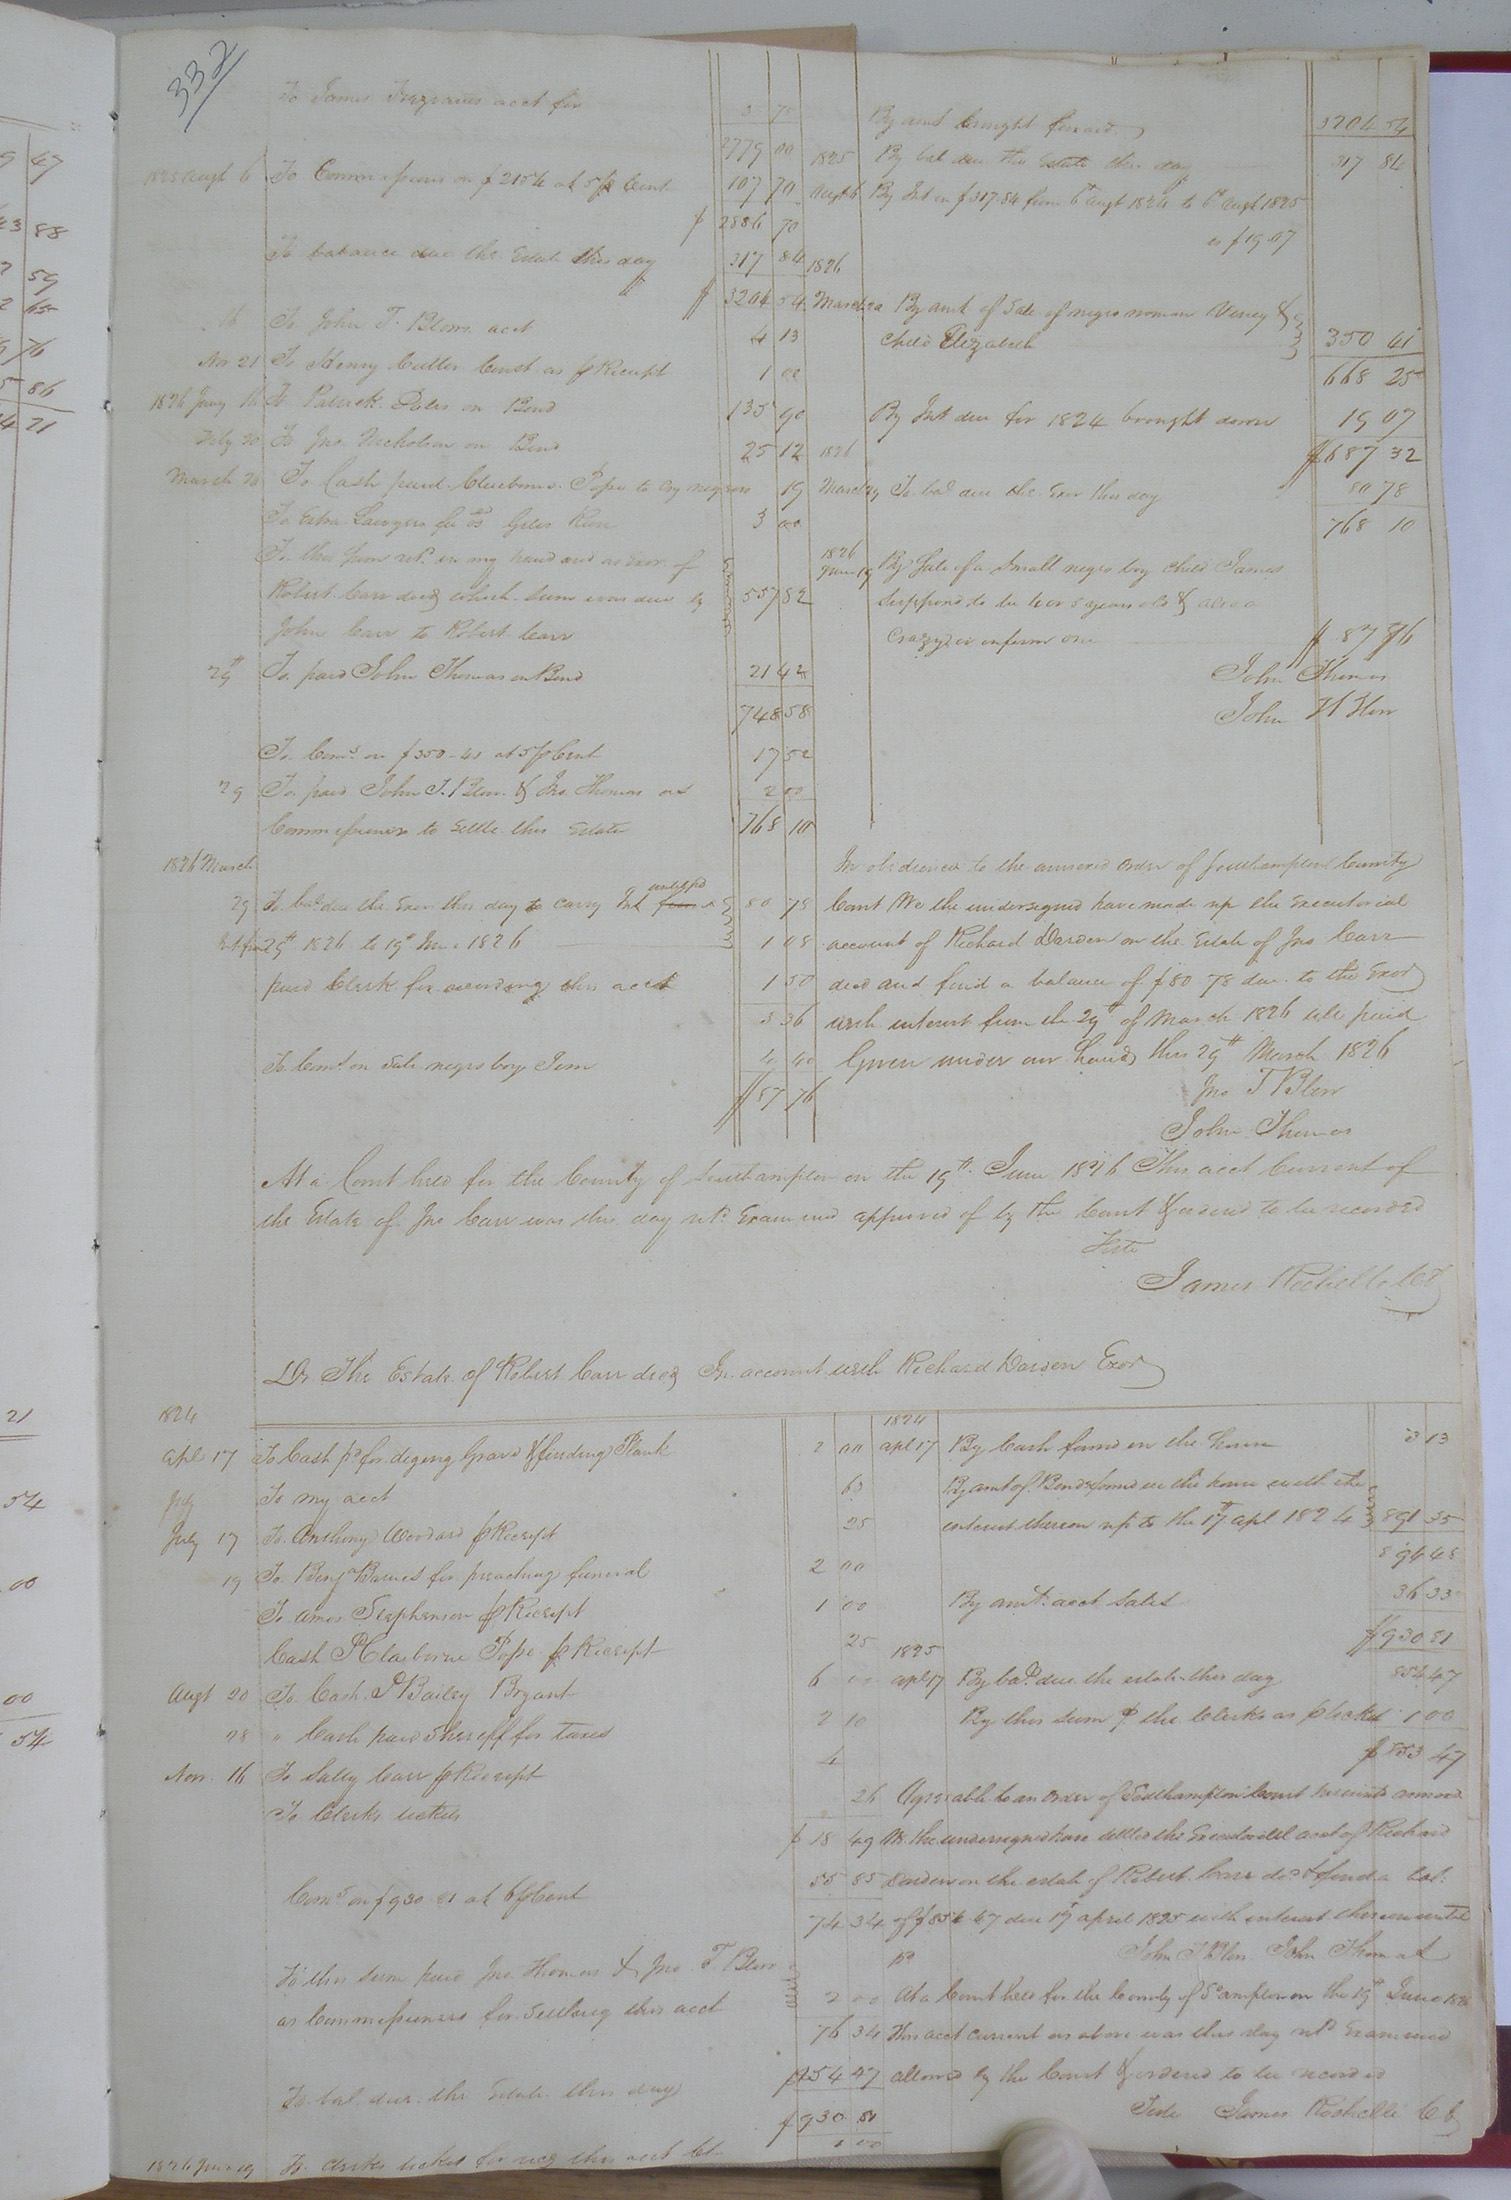 332
To James Trezvants acct for 3 75
2779 00
1825 Augt 6 To Commissions on $2154 at 5 pr Cent 107 70
$ 2886 70
To balance due the Estate this day 317 84
$ 3204 54
To John T. Blows acct 4 13
Nov 21 To Henry Cutler Const as pr Receipt 1 00
1826 Jany 16 To Patrick Doles on Bond 135 90
Feby 20 To Jno Nicholson on Bond 25 12
March 20 To Cash paid Claeborne Pope to Cry negroes 19
To Extra Lawyers fee 3 00
To this sum retd. in my hand and as Exor of
Robert Carr decd which sum was due by 557 82
John Carr to Robert Carr
29th To paid John Thomas on Bond 21 42
748 58
To Coms. on $350-41 at 5 pr Cent 17 52
29 To paid John T. Blow & Jno. Thomas as 2 00
Commissioners to settle this Estate 768 10
1826 March
29 To bal. due the Exor this day to carry Int until pd 80 78
29th 1826 to 19th June 1826 1 08
paid Clerk for recording this acct 1 50
3 36
To Coms. on Sale negro boy Jim 4 40
$ 87 76
By amt brought forward 3204 54
1825 By bal due the Estate this day 317 84
Augt 6 By Int on $317.84 from 6th Augt 1824 to 6th Augt 1825
is $19.07
1826
March 20 By amt of Sale of negro woman Viney &
Child Elizabeth 350 41
668 25
By Int due for 1824 brought down 19 07
1826 $687 32
March 29 To bal due the Exor this day 80 78
768 10
1826
June 19 By Sale of a Small negro boy Child James
supposed to be 4 or 5 years old & also a
Crazy or infirm one $ 87 76
John Thomas
John T Blow
In obedience to the annexed order of Southampton County
Court We the undersigned have made up the Executorial
account of Richard Darden on the Estate of Jno Carr
decd and find a balance of $80 78 due to the Exor
with interest from the 29th of March 1826 till paid
Given under our hands this 29th March 1826
Jno T Blow
John Thomas
At a Court held for the County of Southampton on the 19th June 1826 This acct Current of
the Estate of Jno Carr was this day retd Examined approved of by the Court & ordered to be recorded
Teste
James Rochelle Ct
Dr The Estate of Robert Carr decd In account with Richard Darden Exor
1824
Apl 17 To Cash pd for diging Grave & finding Plank 2 00
To my acct 63
July 17 To Anthony Woodard pr Receipt 25
19 To Benja Barnes for preaching funeral 2 00
To Amos Stephenson pr Receipt 1 00
Cash Claiborne Pope pr Receipt 25
Augt 20 To Cash Pd Bailey Bryant 6 00
28 " Cash paid Sheriff for taxes 2 10
Nov. 16 To Sally Carr pr Receipt 4
To Clerks tickets 26
$ 18 49
Coms on $930 81 at 6 pr Cent 55 85
74 34
To this sum paid Jno. Thomas & Jno T. Blow
as Commissioners for Settling this acct 2 00
76 34
To bal. due the Estate this day $854 47
$930 81
1826 June 19 To Clerks ticket for recg this acct 1 00
1824
Apl 17 By Cash found in the house 3 13
By amt of Bonds found in the house with the
interest thereon up to the 17th Apl 1824 891 35
894 48
By amt. acct Sales 36 33
$930 81
1825
Apl 17 By bal due the estate this day 854 47
By this sum pd the Clerks as pr ticket 1 00
$ 853 47
Agreeable to an order of Southampton Court hereunto annexed
We the undersigned have settled the Executorial acct of Richard
Darden on the estate of Robert Carr decd & find a bal.
of $854 47 due 17th April 1825 with interest thereon until
pd John T Blow John Thomas
At a Court held for the County of So ampton on the 19th June 1826
This acct current as above was this day retd Examined
allowed by the Court & ordered to be recorded
Teste James Rochelle Ct